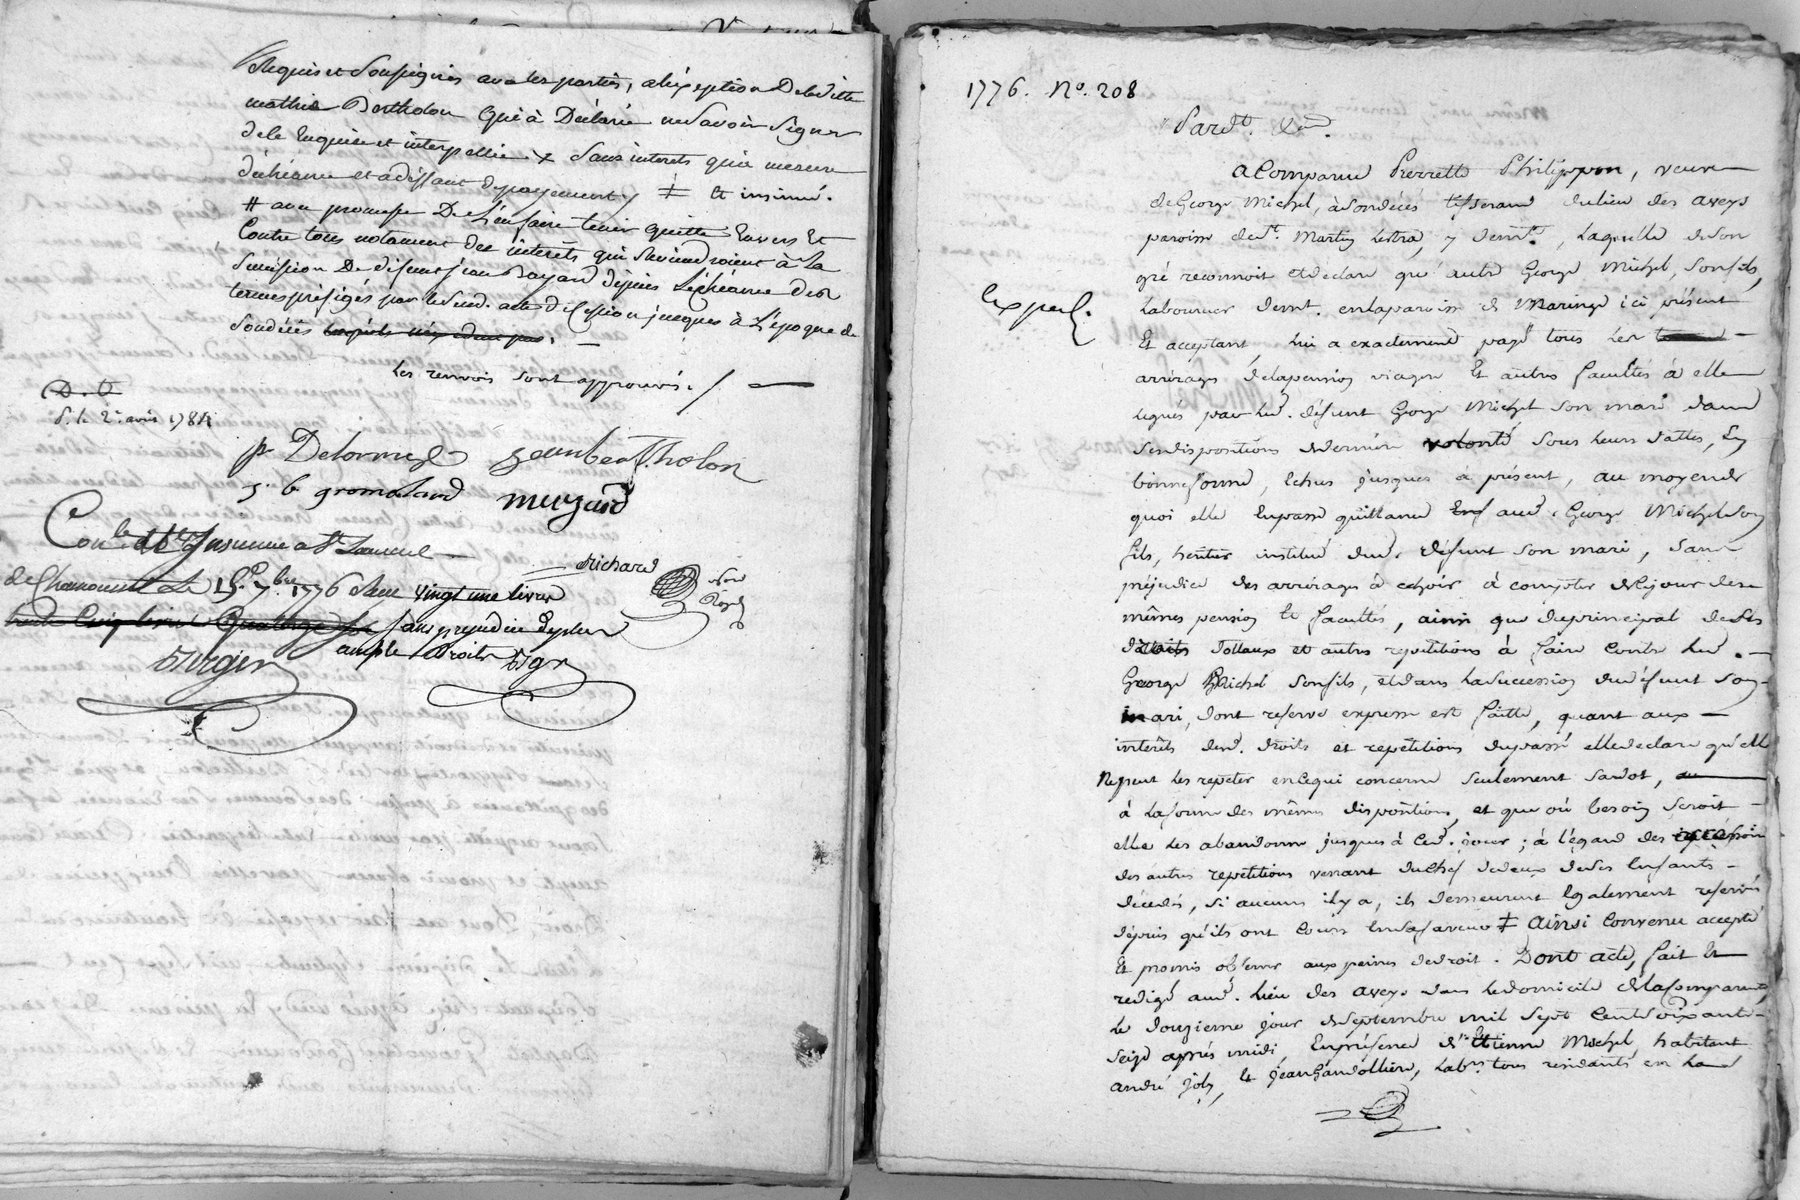 Requis et Soussignés avec les parties, a l'exeption De laditte
mathie Bertholon Qui à Déclaré ne Savoir Signer
de le Enquise et interpellée. x Sans interets qu'a mesure
d'échéance et a déffaut de payement ≠ et insinué.
# avec promesse De L'en faire tenir Quitte Envers Et
Contre tous notament des intérêts qui Reviendroient à La
Succession De défunt jean Bayard dépuis L'échéance des
termes préfigés par le Sud. acte de Cession jusques à L'époque de
Son décès
Les renvois sont approuvés. /
D. D
S. le 2. avril 1784
pr Delorme jeanberTholon
j. b. gromoLard meyzard
Richard
Con.lé et Insinué a St. Laurent
de Chamousset Le 15e. 7.bre 1776 Reçu Vingt une livres
Sans préjudice de plus
ample Droits
Not
Royal
1776. No. 208
a Comparue Pierrette Philippon, veuve
de George Michel, à Son décès tisserand du lieu des aveys
paroisse de St. Martin Lestra, y demt., Laquelle de Son
gré reconnoit et declare qu'autre George Michel, Son fils,
Laboureur demt. en la paroisse de Maringe ici présent
Et acceptant Lui a exactement payé tous Les
arrérages de la pension viagere Et autres facultés à elle
legués par led. défunt George Michel Son mari dans
Ses dispositions de derniere volonté Sous Leurs dattes, En
bonne forme, Echus jusques a présent, au moyen de
quoi elle En passe quittance aud. George Michel Son
fils, heritier institué dud. défunt Son mari, Sans
préjudice des arrérages à échoir à compter de ce jour des
mêmes pension et facultés, ainsi que du principal de Ses
droits dottaux et autres repetitions à faire Contre led.
George Michel Son fils, et dans La Succession du défunt Son
mari, dont reserve expresse est faitte, quant aux
intérêts desd. droits et repetitions du passé elle declare qu'elle
Ne peut Les repeter en ce qui concerne Seulement Sa dot,
à La forme des mêmes dispositions, et que où besoin Seroit
elle Les abandonne jusques à Ced. jour ; à l'égard des
des autres repetitions venant du chef de deux de Ses Enfants
décédés, Si aucuns il y a, ils demeurent Egalement reservés
dépuis qu'ils ont Cours En Sa faveur ≠ Ainsi Convenu accepté
Et promis observer aux peines de droit. Dont acte, fait Et
redigé aud. Lieu des aveys dans Le domicile de la Comparante,
Le douzieme jour de Septembre mil Sept Cent Soixante
Seize après midi, En présence d'Etienne Michel habitant
andré joly, et jean Gandolliere, Labrs. tous residants en Lad